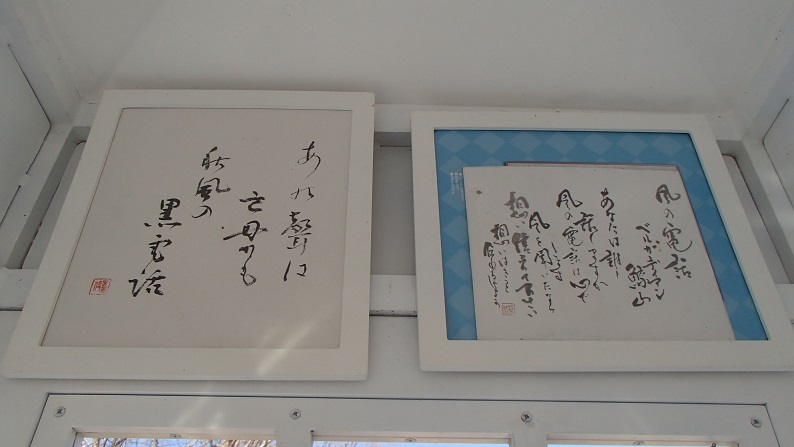 風の電話
ベルガーディア鯨山
あなたは誰と
話しますか
風の電話は心で
話します
風を聞いたなら
想いを伝えて下さい
想いはきっと
届くでしょう
あの聲は
亡母かも
秋風の
黒電話